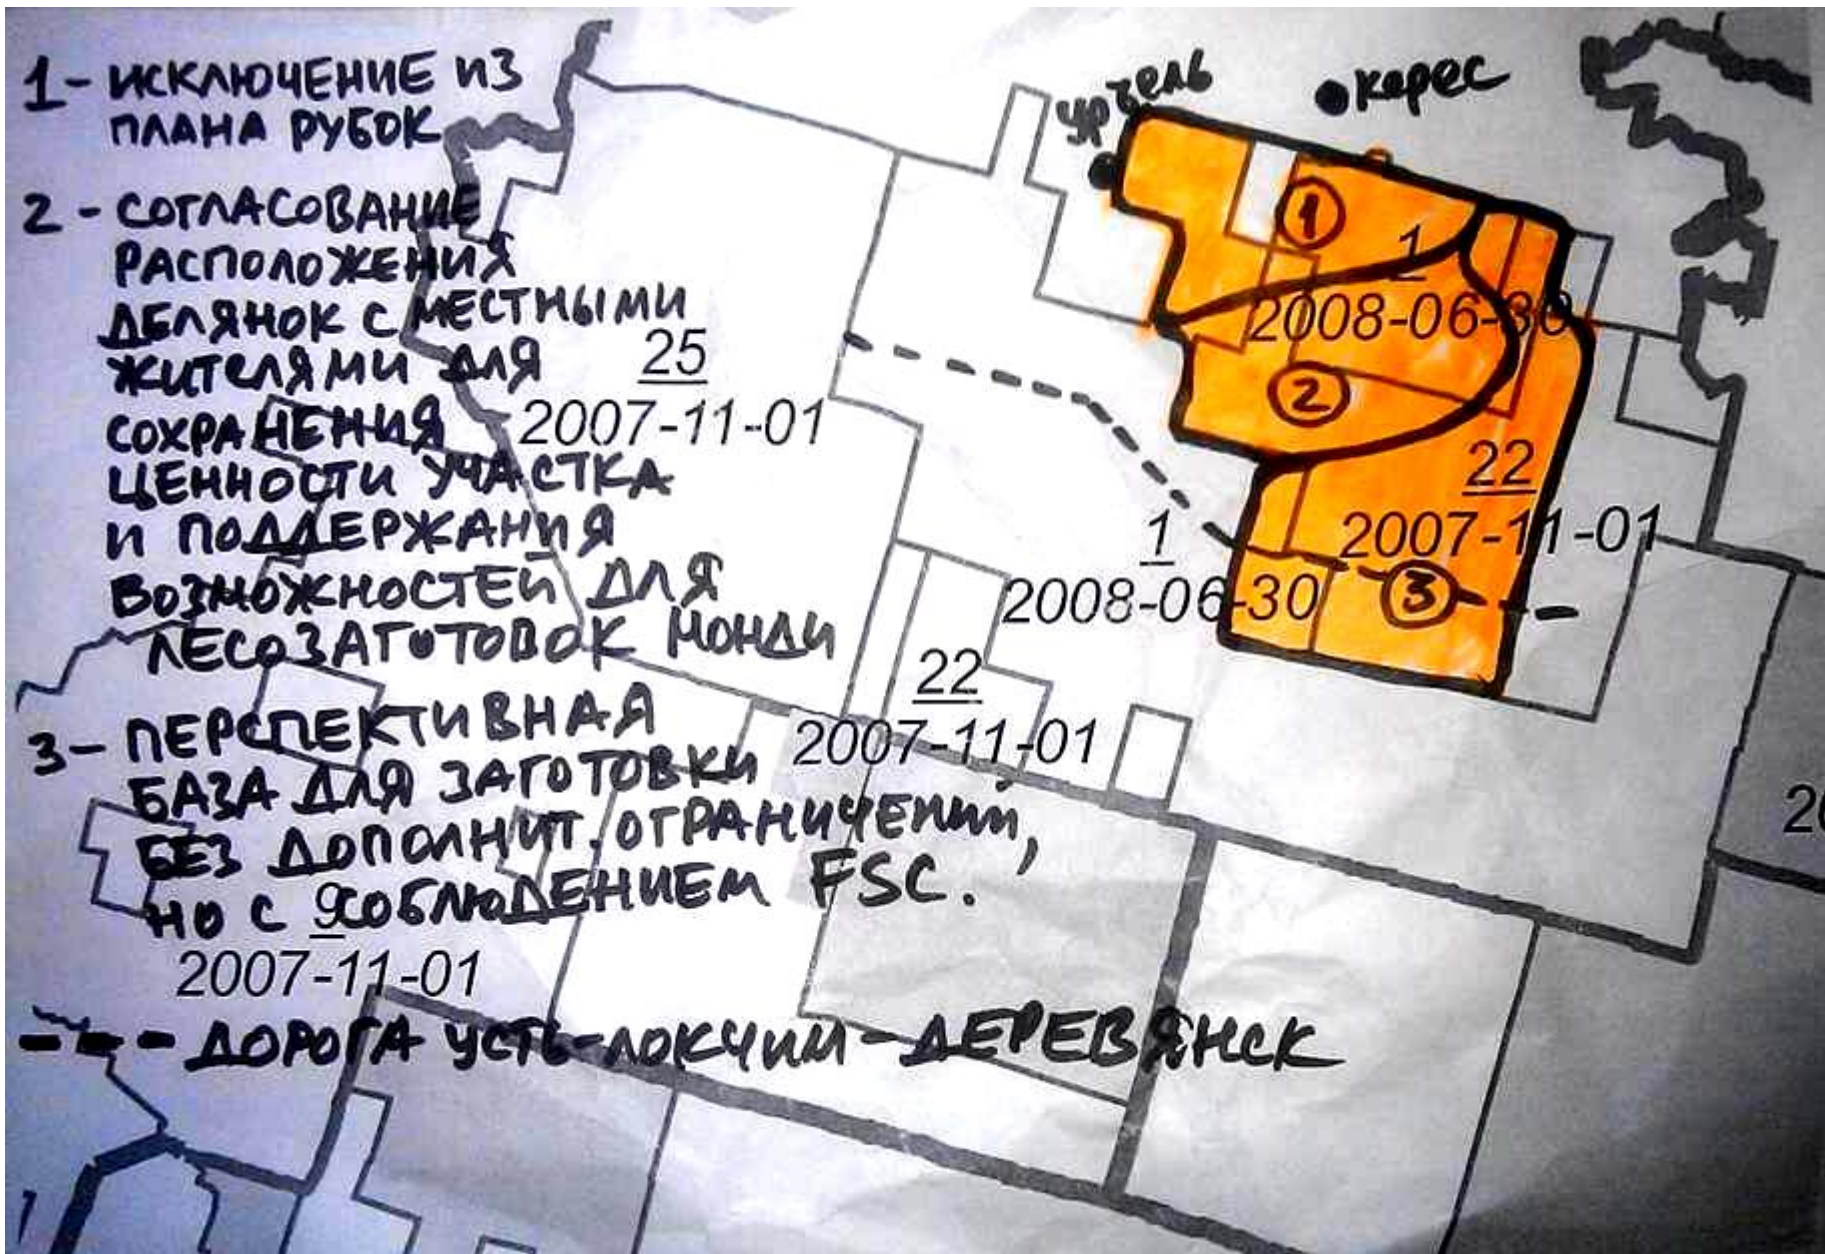 1- ИСКЛЮЧЕНИЕ ИЗ
ПЛАНА РУБОК
2 - СОГЛАСОВАНИЕ
РАСПОЛОЖЕНИЯ
ДЕЛЯНОК С МЕСТНЫМИ
ЖИТЕЛЯМИ ДЛЯ
СОХРАНЕНИЯ
ЦЕННОСТИ УЧАСТКА
И ПОДДЕРЖАНИЯ
ВОЗМОЖНОСТЕЙ ДЛЯ
ЛЕСОЗАГОТОВОК МОНДИ
3- ПЕРСПЕКТИВНАЯ
БАЗА ДЛЯ ЗАГОТОВКИ
БЕЗ ДОПОЛНИТ. ОГРАНИЧЕНИЙ,
НО С СОБЛЮДЕНИЕМ FSC.
9
2007-11-01
--- ДОРОГА УСТЬ-ЛОКЧИМ - ДЕРЕВЯНСК
урчель
керес
1
1
2008-06-30
2
25
2007-11-01
22
2007-11-01
1
2008-06-30
3
22
2007-11-01
20